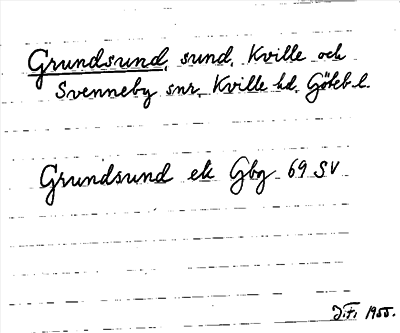 Grundsund, sund, Kville och
Svenneby snr, Kville hd. Göteb. l.
Grundsund ek Gbg 69 SV
J.F. 1955.